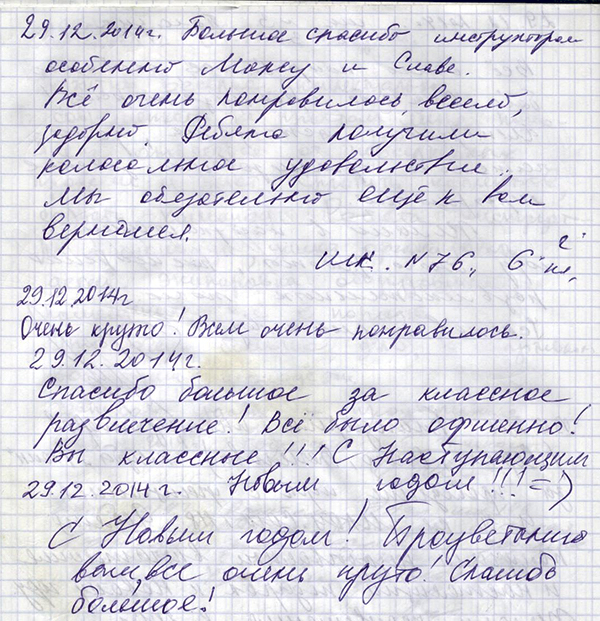 29.12.2014г. Большое спасибо инструкторам
особенно Максу и Славе.
Всё очень понравилось, весело,
задорно. Ребята получили
колосальное удовольствие..
Мы обязательно ещё к вам
вернёмся.
шк. N76, 6 "г" кл,
29.12 2014г
Очень круто! Всем очень понравилось.
29.12.2014г.
Спасибо большое за классное
развлечение! Всё было офигенно!
Вы классные!!! С Наступающим
29.12.2014г. Новым годом!!! =)
С Новым годом! Процветания
вам, все очень круто! Спасибо
большое!